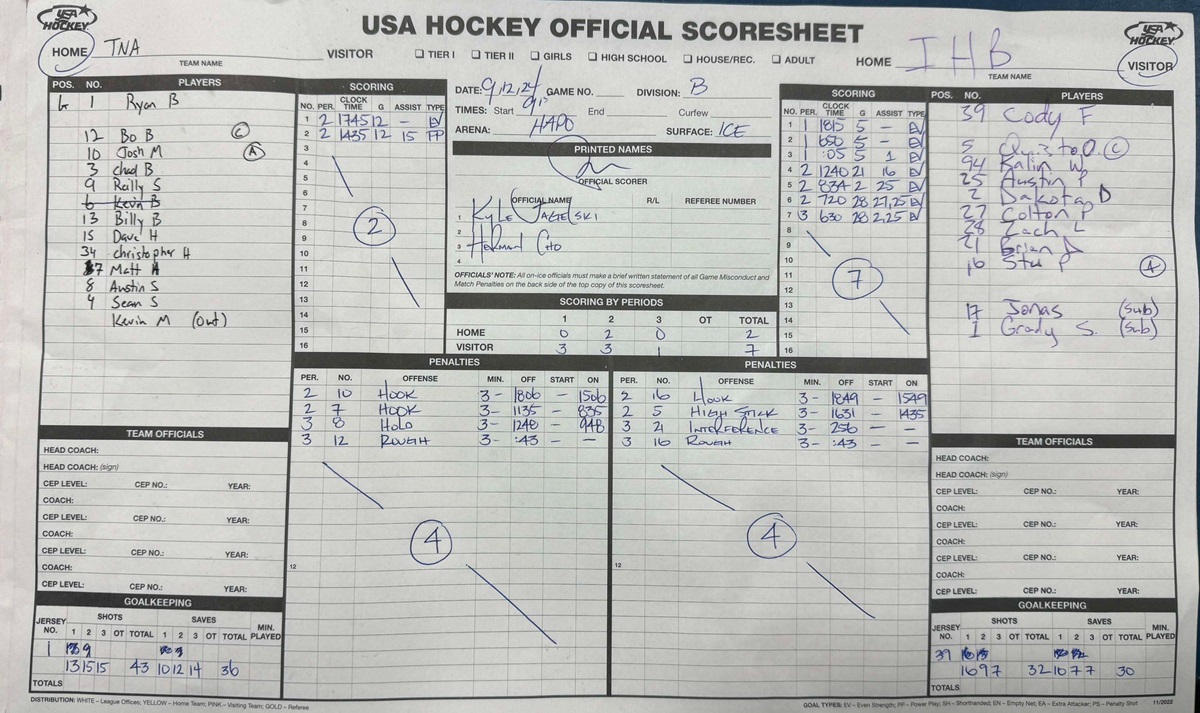 USA HOCKEY
USA HOCKEY OFFICIAL SCORESHEET
USA HOCKEY
HOME TNA VISITOR
TEAM NAME
☐ TIER I ☐ TIER II ☐ GIRLS ☐ HIGH SCHOOL ☐ HOUSE/REC. ☐ ADULT
HOME IHB VISITOR
TEAM NAME
POS. NO. PLAYERS
G 1 Ryan B
12 Bo B C
10 Josh M A
3 Chad B
9 Reilly S
6 Kevin B
13 Billy B
15 Dave H
34 Christopher H
7 Matt A
8 Austin S
4 Sean S
Kevin M (out)
SCORING
NO. PER. CLOCK TIME G ASSIST TYPE
1 2 1745 12 - EV
2 2 1435 12 15 PP
3
4
5
6
7
8
9
10
11
12
13
14
15
16
2
DATE: 9/12/24 GAME NO. DIVISION: B
TIMES: Start 9:15 End Curfew
ARENA: HAPO SURFACE: ICE
PRINTED NAMES
OFFICIAL SCORER
OFFICIAL NAME R/L REFEREE NUMBER
1 Kyle
2
3 Herman
4
OFFICIALS' NOTE: All on-ice officials must make a brief written statement of all Game Misconduct and
Match Penalties on the back side of the top copy of this scoresheet.
SCORING BY PERIODS
1 2 3 OT TOTAL
HOME 0 2 0 2
VISITOR 3 3 1 7
SCORING
NO. PER. CLOCK TIME G ASSIST TYPE
1 1 1815 5 - EV
2 1 650 5 - EV
3 1 :05 5 1 EV
4 2 1240 21 16 EV
5 2 834 2 25 EV
6 2 720 28 27,25 EV
7 3 630 28 2,25 EV
8
9
10
11
12
13
14
15
16
7
POS. NO. PLAYERS
39 Cody F
5 O. C
94 Kalin W
25 Austin P
2 Dakota D
27 Colton P
28 Zach L
21 Brian D
16 Stu P A
17 Jonas (sub)
1 Grady S. (sub)
PENALTIES
PER. NO. OFFENSE MIN. OFF START ON
2 10 HOOK 3- 1806 - 1506
2 7 HOOK 3- 1135 - 835
3 8 HOLD 3- 1248 - 948
3 12 ROUGH 3- :43 - -
12
4
PENALTIES
PER. NO. OFFENSE MIN. OFF START ON
2 16 HOOK 3- 1849 - 1549
2 5 HIGH STICK 3- 1631 - 1435
3 21 INTERFERENCE 3- 256 - -
3 16 ROUGH 3- :43 - -
12
4
TEAM OFFICIALS
HEAD COACH:
HEAD COACH: (sign)
CEP LEVEL: CEP NO.: YEAR:
COACH:
CEP LEVEL: CEP NO.: YEAR:
COACH:
CEP LEVEL: CEP NO.: YEAR:
COACH:
CEP LEVEL: CEP NO.: YEAR:
GOALKEEPING
JERSEY NO. SHOTS SAVES MIN. PLAYED
1 2 3 OT TOTAL 1 2 3 OT TOTAL
1
13 15 15 43 10 12 14 36
TOTALS
TEAM OFFICIALS
HEAD COACH:
HEAD COACH: (sign)
CEP LEVEL: CEP NO.: YEAR:
COACH:
CEP LEVEL: CEP NO.: YEAR:
COACH:
CEP LEVEL: CEP NO.: YEAR:
COACH:
CEP LEVEL: CEP NO.: YEAR:
GOALKEEPING
JERSEY NO. SHOTS SAVES MIN. PLAYED
1 2 3 OT TOTAL 1 2 3 OT TOTAL
39
16 9 7 32 10 7 7 30
TOTALS
DISTRIBUTION: WHITE – League Offices; YELLOW – Home Team; PINK – Visiting Team; GOLD – Referee
GOAL TYPES: EV – Even Strength; PP – Power Play; SH – Shorthanded; EN – Empty Net; EA – Extra Attacker; PS – Penalty Shot 11/2022